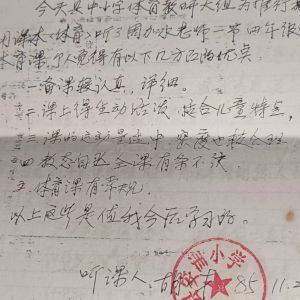 今天县中小学体育教研大组为推行
课本《体育》听了周 老师一节四年
体育课，个人觉得有以下几方面的优点
一 备课较认真，详细。
二 课上得生动活泼，结合儿童特点，
三 课的 中，密度也较合理
四 教态自然 全课有条不
五 体育课有常规
以上这些是值我今后学习的。
听课人：胡 85 11.2
洲小学